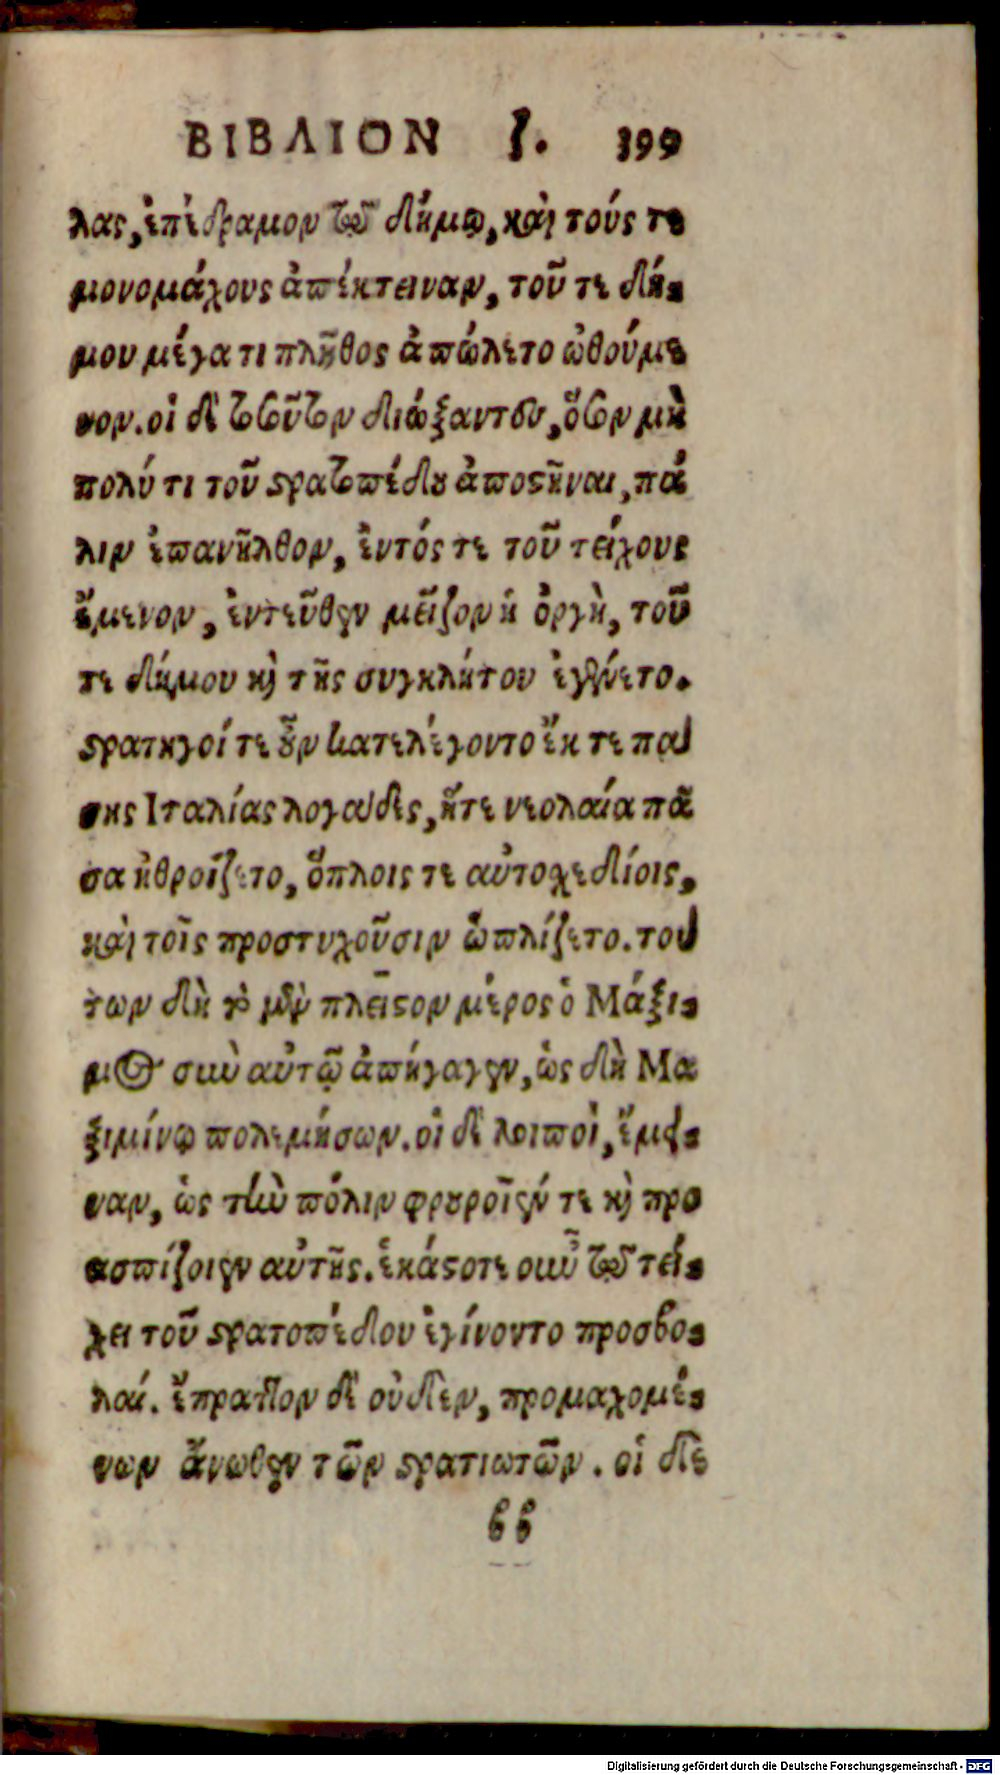 ΒΙΒΛΙΟΝ ζ. 399
λας, ἐπέδραμον τῷ δήμῳ, καὶ τούς τε
μονομάχους ἀπέκτειναν, τοῦ τε δή-
μου μέγα τι πλῆθος ἀπώλετο ὠθούμε
νον. οἱ δὲ τοσοῦτον διώξαντες, ὅσον μὴ
πολύ τι τοῦ στρατοπέδου ἀποστῆναι, πά
λιν ἐπανῆλθον, ἐντός τε τοῦ τείχους
ἔμενον, ἐντεῦθεν μεῖζον ἡ ὀργὴ, τοῦ
τε δήμου καὶ τῆς συγκλήτου ἐγένετο.
στρατηγοί τε οὖν κατελέγοντο ἔκ τε πά
σης Ιταλίας λογάδες, ἥτε νεολαία πᾶ
σα ἠθροίζετο, ὅπλοις τε αὐτοσχεδίοις,
καὶ τοῖς προστυχοῦσιν ὡπλίζετο. τού
των δὴ τὸ μὲν πλεῖστον μέρος ὁ Μάξι-
μος σὺν αὐτῷ ἀπήγαγεν, ὡς δὴ Μα
ξιμίνῳ πολεμήσων. οἱ δὲ λοιποὶ, ἔμει-
ναν, ὡς τὴν πόλιν φρουροῖεν τε καὶ προ
ασπίζοιεν αὐτῆς. ἑκάστοτε οὖν τῷ τεί-
χει τοῦ στρατοπέδου ἐγίνοντο προσβο-
λαί. ἔπραττον δὲ οὐδὲν, προμαχομέ-
νων ἄνωθεν τῶν στρατιωτῶν. οἱ δὲ
ϐϐ
Digitalisierung gefördert durch die Deutsche Forschungsgemeinschaft - DFG